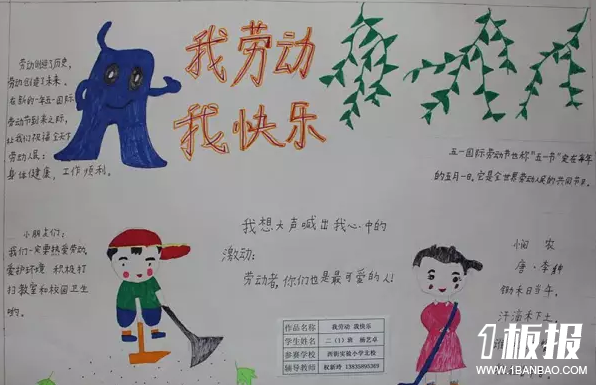 劳动创造了历史,
劳动创造了未来。
在新的一年五一国际
劳动节到来之际,
让我们祝福全天下
劳动人民:
身体健康、工作顺利。
我劳动
我快乐
五一国际劳动节也称"五一节"定在每年
的五月一日。它是全世界劳动人民的共同节日。
小朋友们:
我们一定要热爱劳动,
爱护环境 积极打
扫教室和校园卫生
哟。
我想大声喊出我心中的
激动:
劳动者,你们也是最可爱的人!
悯农
唐·李绅
锄禾日当午,
汗滴禾下土。
作品名称 我劳动 我快乐
学生姓名 二(1)班 杨艺卓
参赛学校 西街实验小学北校
辅导教师 权新玲 13835895369
1板报
WWW.1BANBAO.COM